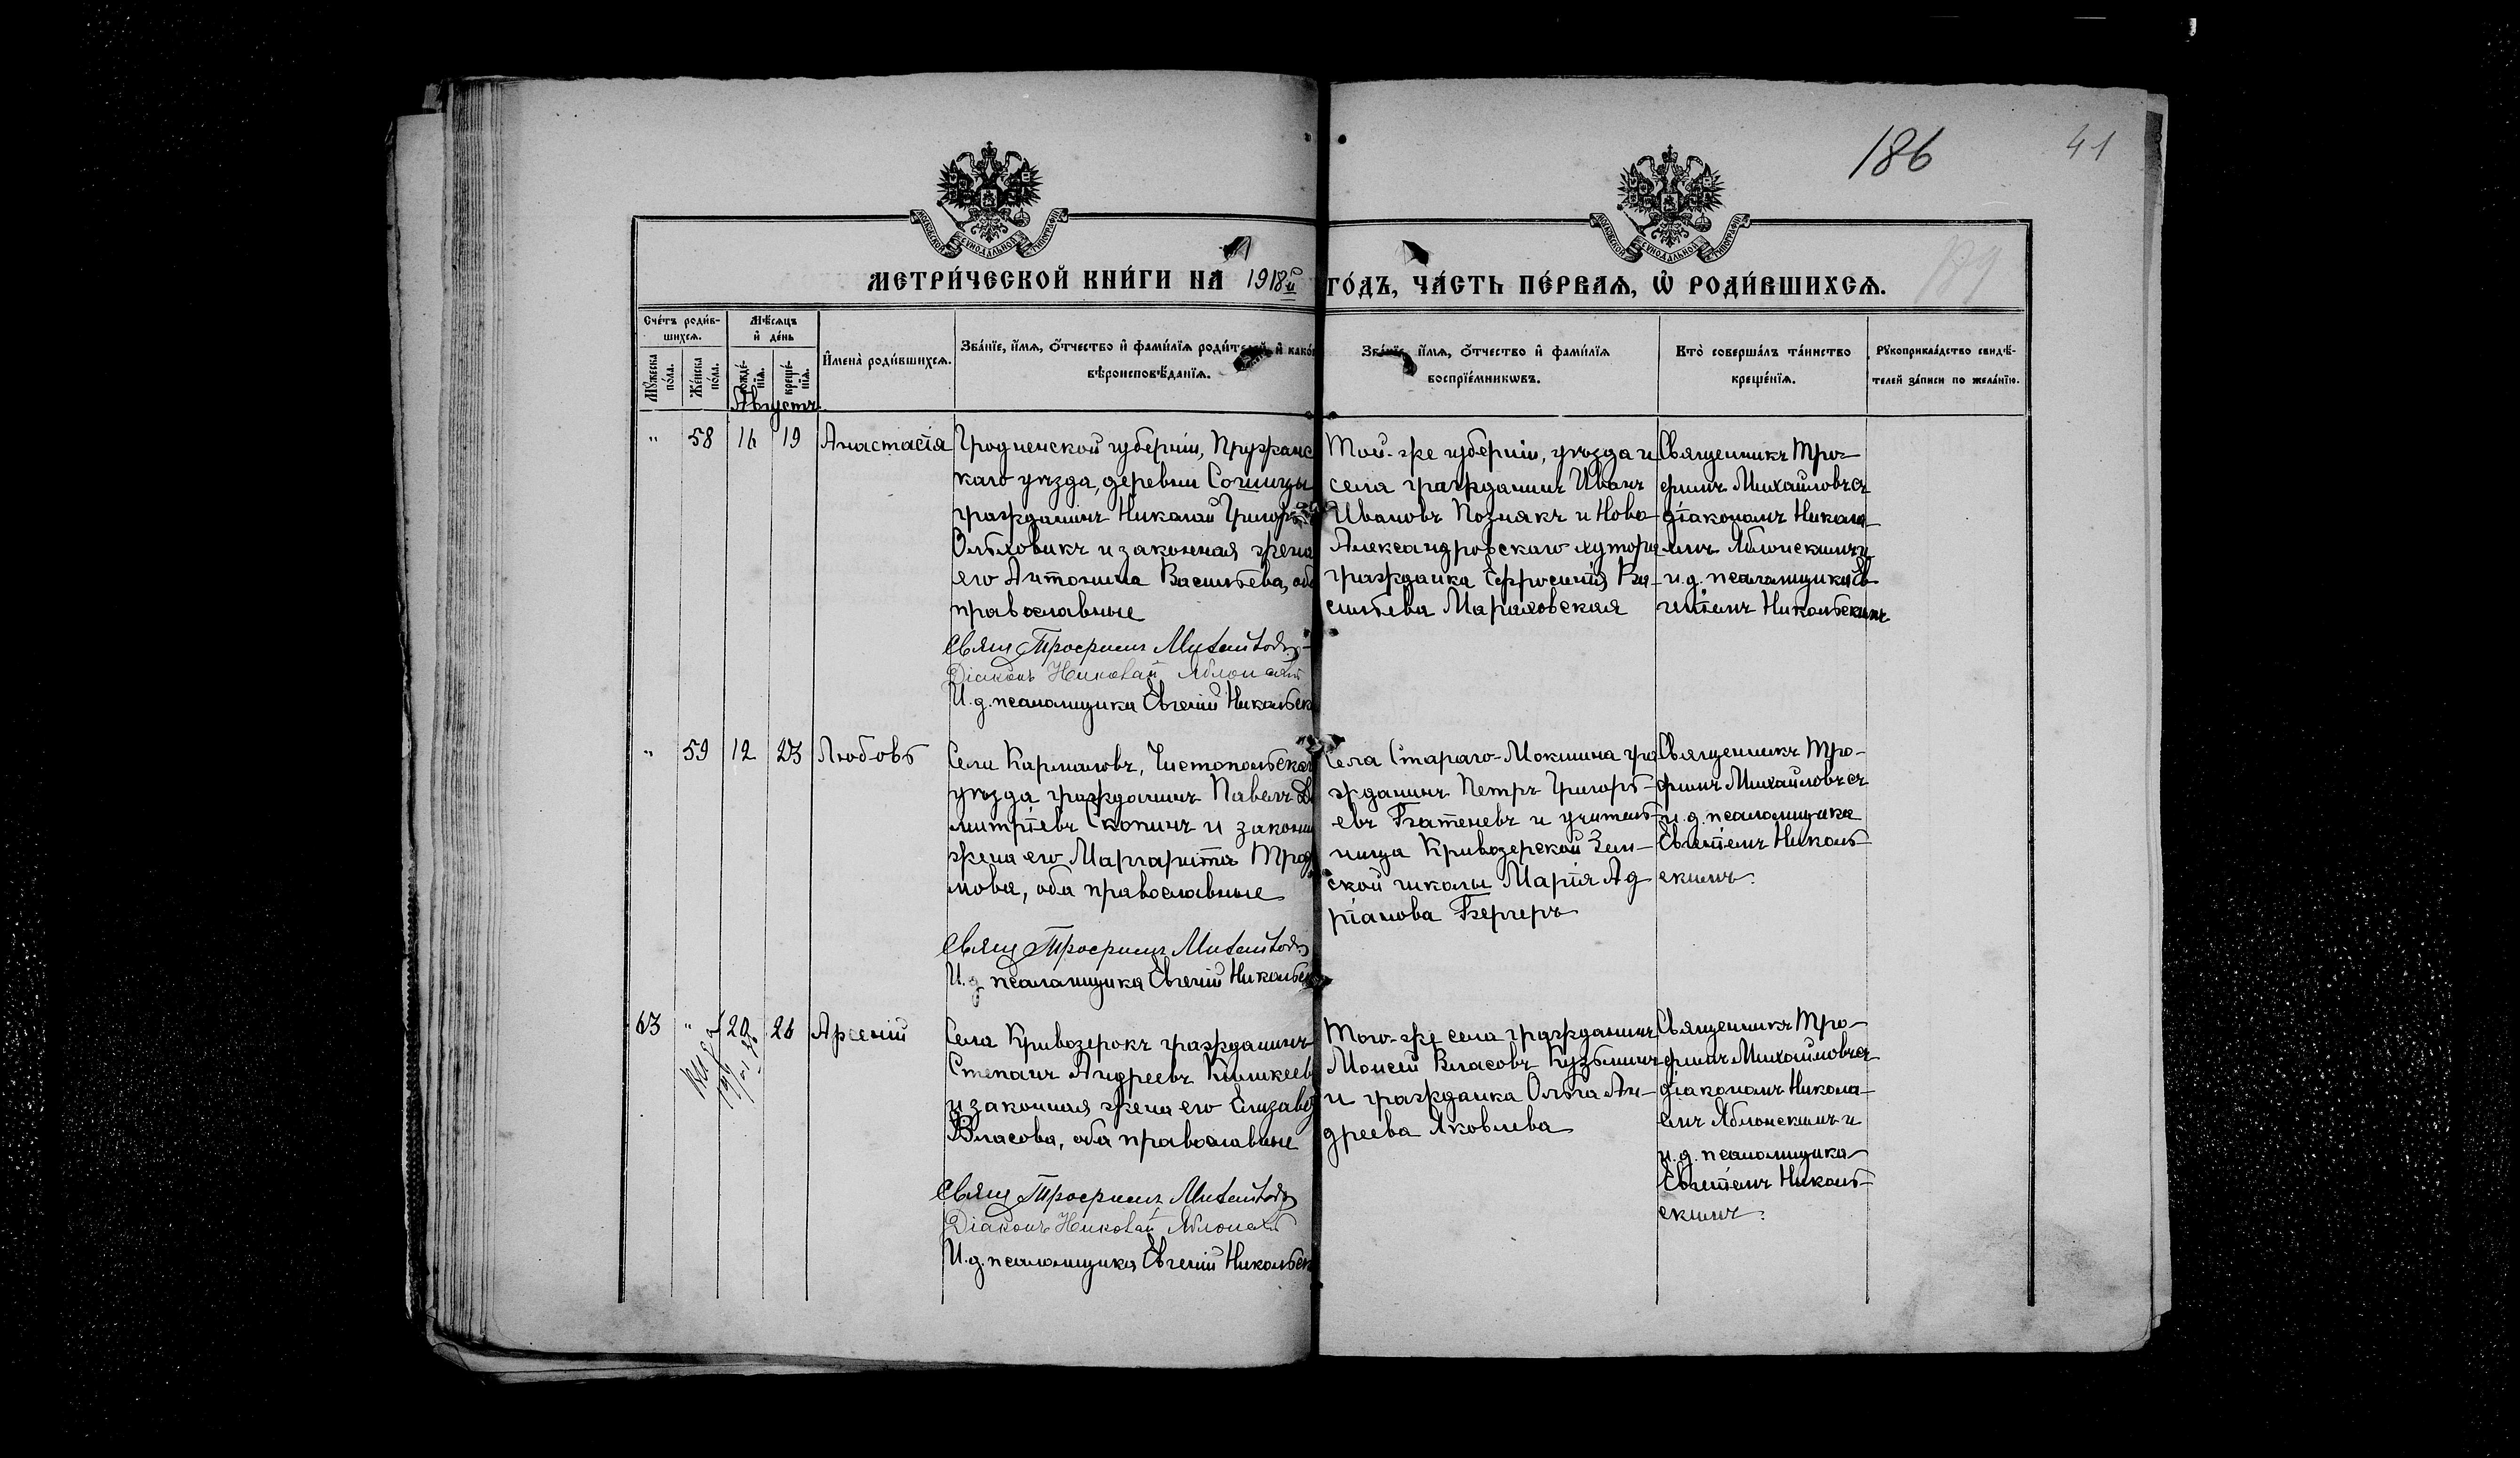 186
41
МЕТРИ́ЧЕСКОЙ КНИ́ГИ НА 1918й ГО́ДЪ, ЧА́СТЬ ПЕ́РВАЯ, Ѡ РОДИ́ВШИХСЯ.
Сче́тъ роди́в-
шихся.
Мꙋ́жеска
по́ла.
Же́нска
по́ла.
Мѣ́сяцъ
и҆ де́нь
рожде́-
нїя.
креще́-
нїя.
И҆мена̀ роди́вшихся.
Зва́нїе, и҆́мя, ѻ҆́тчество и҆ фами́лїя роди́телей, и҆ како́
вѣроисповѣ́данїя.
Зва́нїе, и҆́мя, ѻ҆́тчество и҆ фами́лїя
воспрїе́мникѡвъ.
Кто̀ соверша́лъ та́инство
креще́нїя.
Рꙋкоприкла́дство свидѣ́-
телей за́писи по жела́нїю.
Августъ.
" 58 16 19 Анастасія
Гродненской губерніи, Пружанс
каго уѣзда, деревни Сошицы
гражданинъ Николай
Ольховикъ и законная жена
его Антонина Васильева, оба
православные
Свящ Трофимъ Михайловъ
Діаконъ Николай Яблонскій
И. д. псаломщика Евгеній Никольск
Той-же губерніи, уѣзда и
села гражданинъ Иванъ
Ивановъ Познякъ и Ново-
Александровскаго хутора
гражданка Ефросинія Ва-
сильева Мараховская
Священникъ Тро-
фимъ Михайловъ съ
діакономъ Никола-
емъ Яблонскимъ и
и. д. псаломщика Ев-
геніемъ Никольскимъ
" 59 12 23 Любовь
Села Кармаловъ, Чистопольскаг
уѣзда гражданинъ Павелъ Ди
митріевъ Скопинъ и законн
жена его Маргарита Троф
мова, оба православные
Свящ Трофимъ Михайловъ
И. д. псаломщика Евгеній Никольск
Села Стараго-Мокшина гра
жданинъ Петръ Григорь-
евъ Батеневъ и учитель-
ница Кривозерской Зем-
ской школы Марія Ад
ріанова Бергеръ
Священникъ Тро-
фимъ Михайловъ съ
и. д. псаломщика
Евгеніемъ Николь-
скимъ.
63 " 20 26 Арсеній
Села Кривозерокъ гражданинъ
Степанъ Андреевъ Кимкеевъ
и законная жена его Елизавет
Власова, оба православные
Свящ Трофимъ Михайловъ
Діаконъ Николай Яблонскій
И. д. псаломщика Евгеній Никольск
Того-же села гражданинъ
Моисей Власовъ Кузьминъ
и гражданка Ольга Ан-
дреева Яковлева
Священникъ Тро-
фимъ Михайловъ съ
діакономъ Никола-
емъ Яблонскимъ и
и. д. псаломщика
Евгеніемъ Николь-
скимъ.